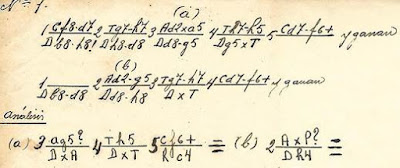 Nº 1.
(a)
1 Cf8-d7 / Db8-h8! 2 Tg7-h7 / Dh8-d8 3 Ad2xa5 / Dd8-g5 4 Th7-h5 / Dg5xT 5 Cd7-f6+ y ganan
(b)
1 / Db8-d8 2 Ad2-g5 / Dd8-h8 3 Tg7-h7 / DxT 4 Cd7-f6+ y ganan
Análisis
(a) 3 Ag5? / DxA 4 Th5 / DxT 5 Cf6+ / Rc4 = (b) 2 AxP? / Dh4 =